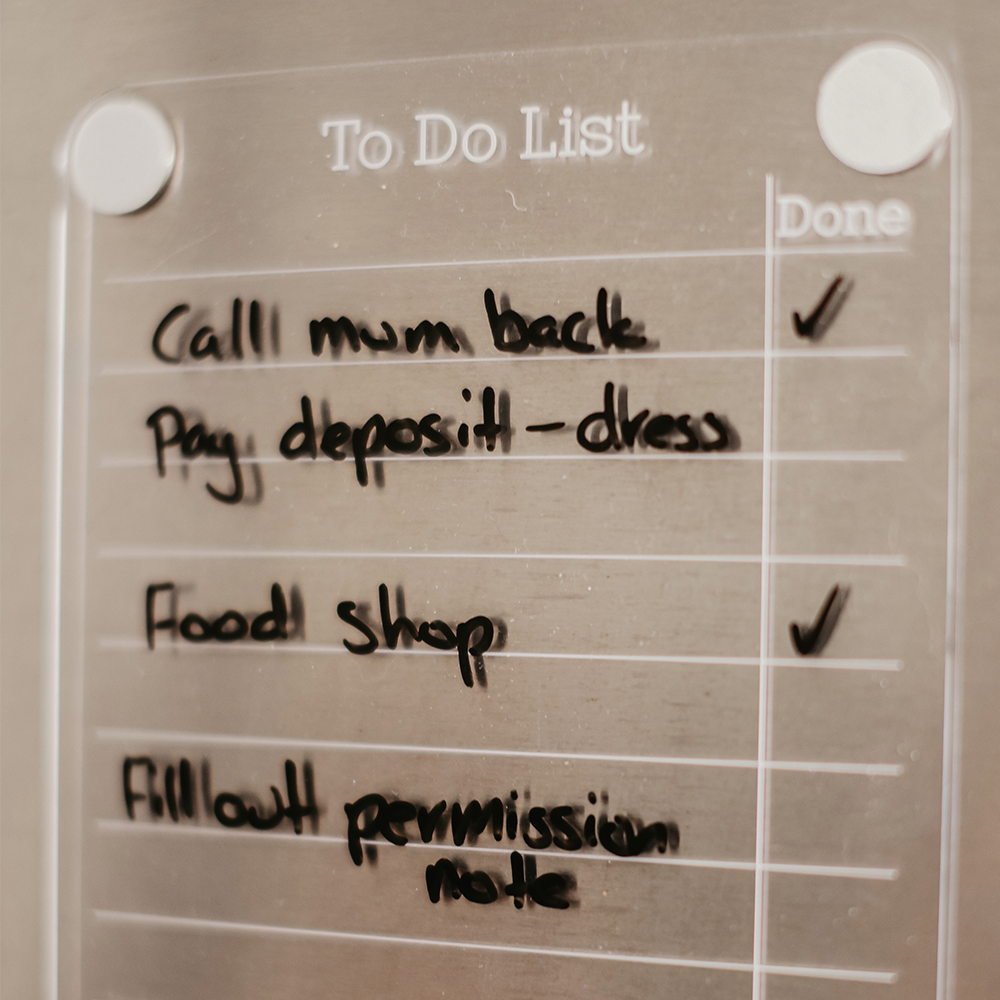 To Do List
Done
Call mum back ✓
Pay deposit - dress
Food shop ✓
Fill out permission
note